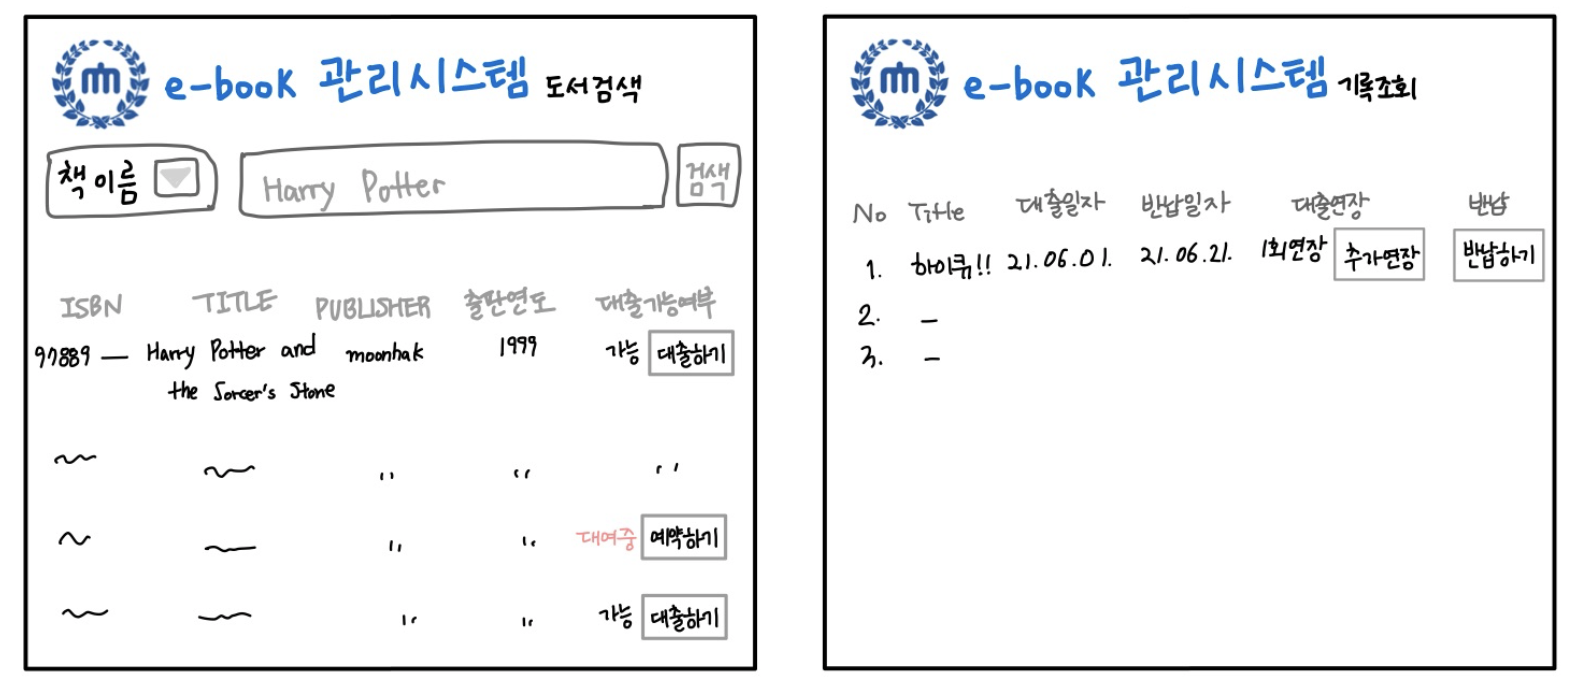 e-book 관리시스템 도서검색
책 이름
Harry Potter
검색
ISBN TITLE PUBLISHER 출판연도 대출가능여부
97889 — Harry Potter and the Sorcer's Stone moonhak 1999 가능 대출하기
〃 〃 〃
〃 〃 대여중 예약하기
〃 〃 가능 대출하기
e-book 관리시스템 기록조회
No Title 대출일자 반납일자 대출연장 반납
1. 하이큐!! 21.06.01. 21.06.21. 1회연장 추가연장 반납하기
2. –
3. –